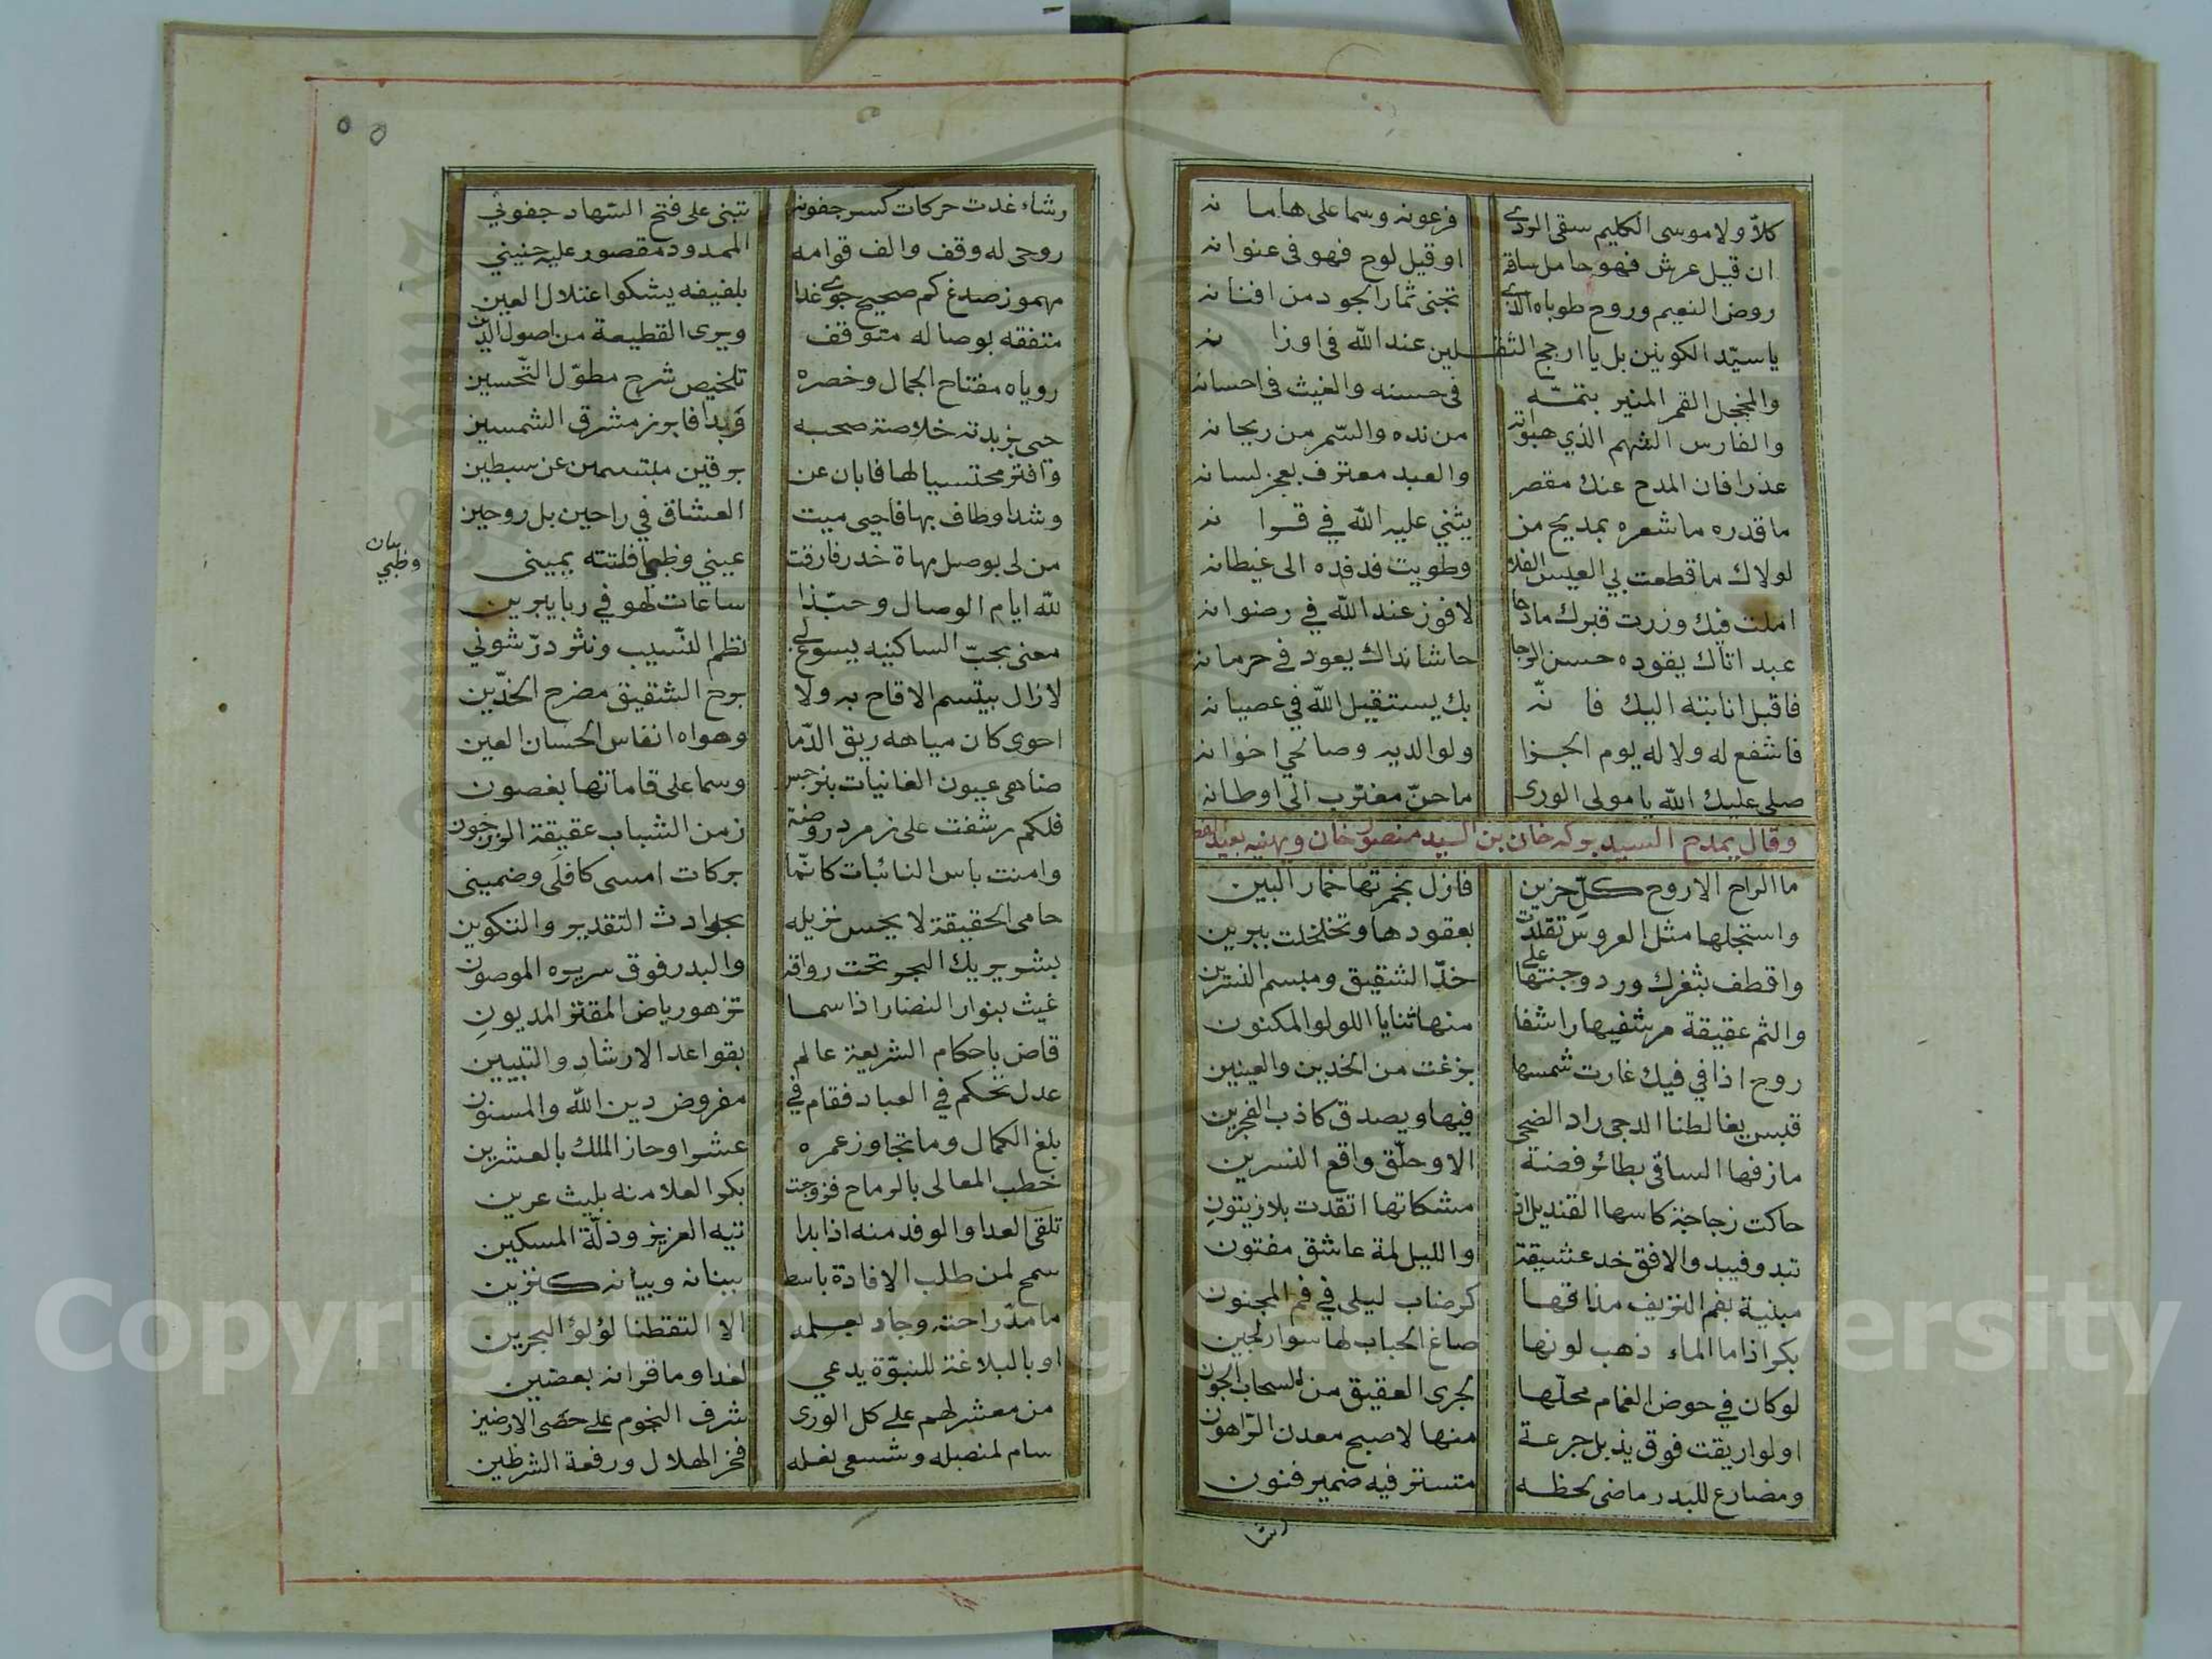 كلا ولا موسى الكليم سقى الردى فرعونه وسما على هامانه
ان قيل عرش فهو حامل ساقه او قيل لوح فهو في عنوانه
روض النعيم وروح طوباه الذي تجنى ثمار الجود من افنانه
يا سيد الكونين بل يا ارجح الثقلين عند الله في اوزانه
والمخجل القمر المنير بتمه في حسنه والغيث في احسانه
والفارس الشهم الذي هبواته من نده والسمر من ريحانه
عذرا فان المدح عنك مقصر والعبد معترف بعجز لسانه
ما قدره ما شعره بمديح من يثني عليه الله في قرانه
لولاك ما قطعت بي العيس الفلا وطويت فدفده الى غيطانه
املت فيك وزرت قبرك مادحا لافوز عند الله في رضوانه
عبد اتاك يقوده حسن الرجا حاشا نداك يعود في حرمانه
فاقبل انابته اليك فانه بك يستقيل الله في عصيانه
فاشفع له ولاله يوم الجزا ولوالديه وصالحي اخوانه
صلى عليك الله يا مولى الورى ما حن مغترب الى اوطانه
وقال يمدح السيد بركه خان بن السيد منصور خان ويهنيه بعيد
ما الراح الا روح كل حزين فازل بخمرتها خمار البين
واستجلها مثل العروس تقلدت بعقودها وتخلخلت ببرين
واقطف بثغرك ورد وجنتها على خد الشقيق ومبسم النسرين
والثم عقيقة مرشفيها راشفا منها ثنايا اللولو المكنون
روح اذا في فيك غارت شمسها بزغت من الخدين والعينين
قبس يغالطنا الدجى راد الضحى فيها ويصدق كاذب الفجرين
ما زفها الساقي بطائر فضة الا وحلق واقع النسرين
حاكت زجاجة كاسها القنديل اذ مشكاتها اتقدت بلا زيتون
تبدو فيبدو الافق خد عشيقة والليل لمة عاشق مفتون
مبنية بفم النزيف مذاقها كرضاب ليلى في فم المجنون
بكر اذا ما الماء ذهب لونها صاغ الحباب لها سوار لجين
لو كان في حوض الغمام محلها لجرى العقيق من السحاب الجون
او لو اريقت فوق يذبل جرعة منها لاصبح معدن الراهون
ومضارع للبدر ماضى لحظه متستر فيه ضمير فنون
رشا
رشاء غدت حركات كسر جفونه تبنى على فتح السهاد جفوني
روحى له وقف والف قوامه الممدود مقصور عليه حنيني
مهموز صدغ كم صحيح جوى غدا بلفيفه يشكو اعتلال العين
متفقه بوصاله متوقف ويرى القطيعة من اصول الدين
روياه مفتاح الجمال وخصره تلخيص شرح مطول التحسين
حيى بزبدته خلاصة صحبه وبدا فابرز مشرق الشمسين
وافتر محتسيا لها فابان عن برقين مبتسمين عن سبطين
وشدا وطاف بها فاحيى ميت العشاق في راحين بل روحين
من لى بوصل مهاة خدر فارقت عيني وظبي افلتته يميني
وظبي بان
لله ايام الوصال وحبذا ساعات لهو في ربا يبرين
مغنى بحب الساكنيه يسوغ لي نظم النسيب ونثر در شوني
لا زال يبتسم الاقاح به ولا برح الشقيق مضرج الخدين
احوى كان مياهه ريق الدما وهواه انفاس الحسان العين
ضاهى عيون الغانيات بنرجس وسما على قاماتها بغصون
فلكم رشفت على زمرد روضة زمن الشباب عقيقة الزرجون
وامنت باس النائبات كانما بركات امسى كافلي وضميني
حامى الحقيقة لا يحس نزيله بحوادث التقدير والتكوين
بشر يريك البحر تحت رواقه والبدر فوق سريره الموصون
غيث بنوار النضار اذا سما تزهو رياض المقتر المديون
قاض باحكام الشريعة عالم بقواعد الارشاد والتبيين
عدل تحكم في العباد فقام في مفروض دين الله والمسنون
بلغ الكمال وما تجاوز عمره عشرا وحاز الملك بالعشرين
خطب المعالى بالرماح فزوجت بكر العلا منه بليث عرين
تلقى العدا والوفد منه اذا بدا تيه العزيز وذلة المسكين
سمح لمن طلب الافادة باسط ببنانه وبيانه كنزين
ما مد راحته وجاد بعلمه الا التقطنا لؤلؤ البحرين
او بالبلاغة للنبوة يدعي لغدا وما قرانه بعضين
من معشر لهم على كل الورى شرف النجوم على حصى الارضين
سام لمنصبله وشسعى نعله فخر الهلال ورفعة الشرطين
Copyright © King Saud University